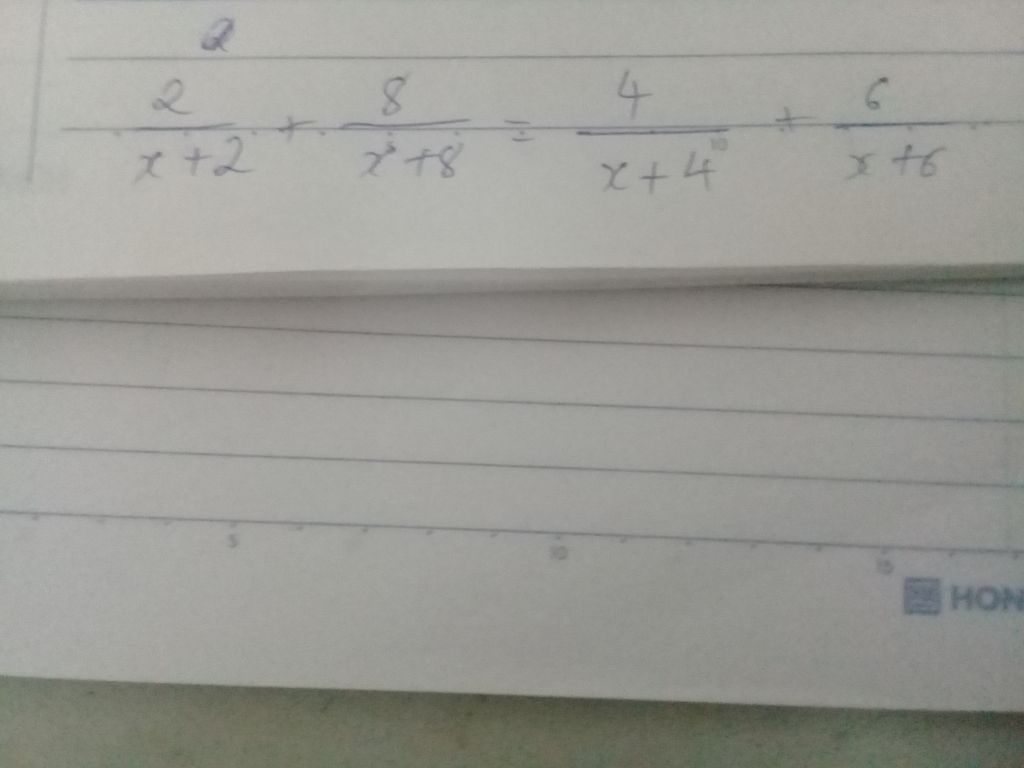 2
2/(x+2) + 8/(x+8) = 4/(x+4) + 6/(x+6)
5 10 15
HON